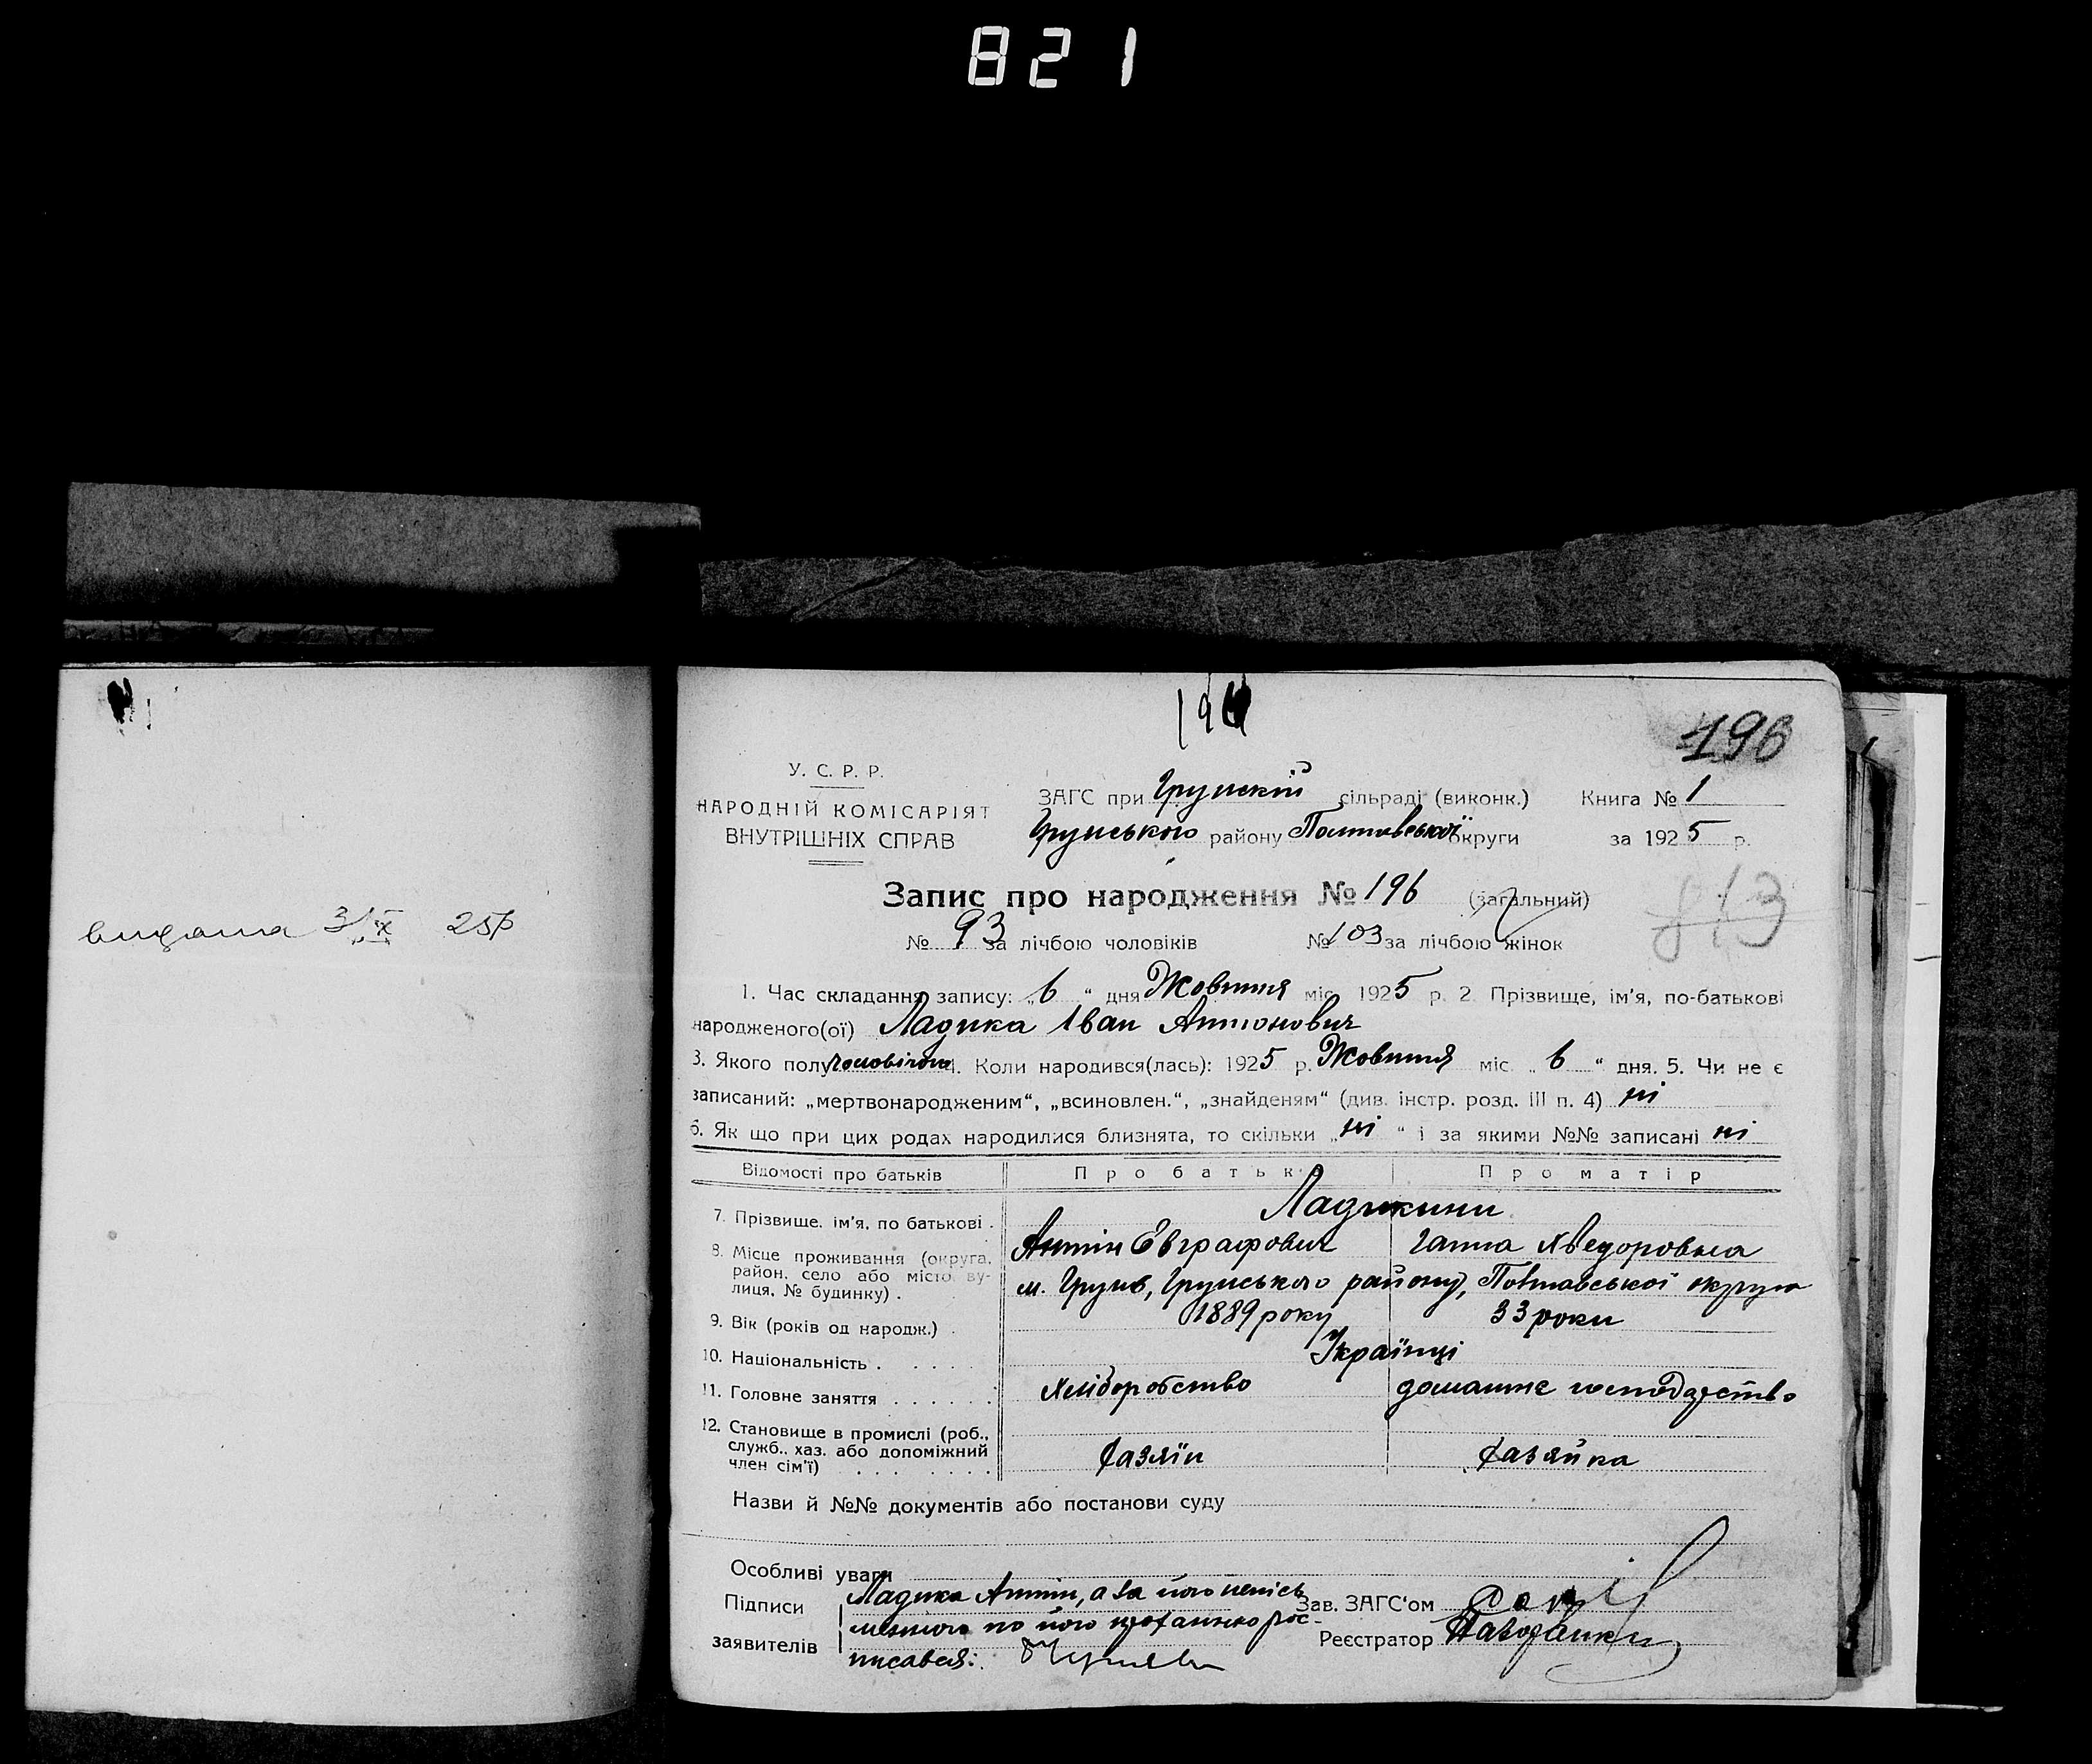 821
196
У. С. Р. Р.
НАРОДНІЙ КОМІСАРІЯТ
ВНУТРІШНІХ СПРАВ
ЗАГС при Грунській сільраді (виконк.) Книга № 1
Грунського району Полтавської округи за 1925 р.
Запис про народження № 196 (загальний)
№ 93 за лічбою чоловіків № 103 за лічбою жінок
813
видана 3/IX 25р
1. Час складання запису: „6“ дня Жовтня міс. 1925 р. 2. Прізвище, ім'я, по-батькові
народженого(ої) Ладика Іван Антонович
3. Якого полу чоловічого 4. Коли народився(лась): 1925 р. Жовтня міс. „6“ дня. 5. Чи не є
записаний: „мертвонародженим“, „всиновлен.“, „знайденям“ (див. інстр. розд. III п. 4) ні
6. Як що при цих родах народилися близнята, то скільки „ні“ і за якими №№ записані ні
Відомості про батьків Про батька Про матір
7. Прізвище, ім'я, по батькові . Ладикини
Антін Євграфович Ганна Хведоровна
8. Місце проживання (округа, район, село або місто, вулиця, № будинку) . м. Грунь, Грунського району, Полтавської округи
9. Вік (років од народж.) . 1889 року 33 роки
10. Національність . . . . . Українці
11. Головне заняття . . . . . . Хліборобство домашнє господарство
12. Становище в промислі (роб., служб., хаз. або допоміжний член сім'ї) . . . . . . . Хазяїн Хазяйка
Назви й №№ документів або постанови суду
Особливі уваги
Підписи заявителів Ладика Антін, а за його неписьменного по його проханню росписався:
Зав. ЗАГС'ом
Реєстратор